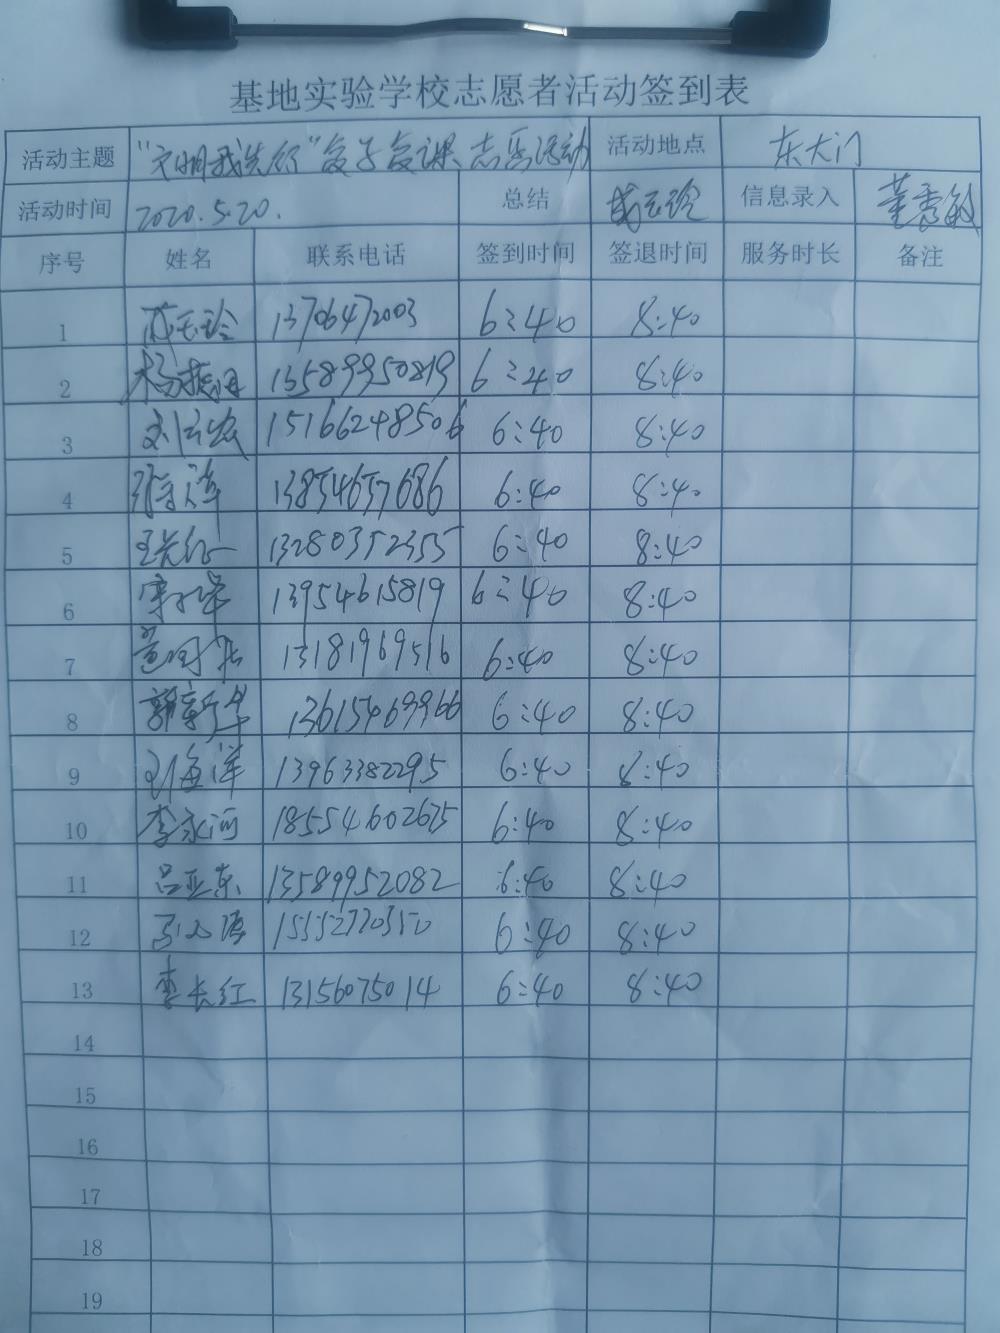 基地实验学校志愿者活动签到表
活动主题 "文明我先行"复学复课志愿活动 活动地点 东大门
活动时间 2020.5.20. 总结 成玉玲 信息录入 董秀敏
序号 姓名 联系电话 签到时间 签退时间 服务时长 备注
1 成玉玲 13706472003 6:40 8:40
2 13589950819 6:40 8:40
3 15166248506 6:40 8:40
4 13854657686 6:40 8:40
5 13280352355 6:40 8:40
6 13954615819 6:40 8:40
7 13181969516 6:40 8:40
8 郭新华 13615469966 6:40 8:40
9 刘海洋 13963382295 6:40 8:40
10 李永河 18554602675 6:40 8:40
11 吕亚东 13589952082 6:40 8:40
12 15552770550 6:40 8:40
13 李长红 13156075014 6:40 8:40
14
15
16
17
18
19